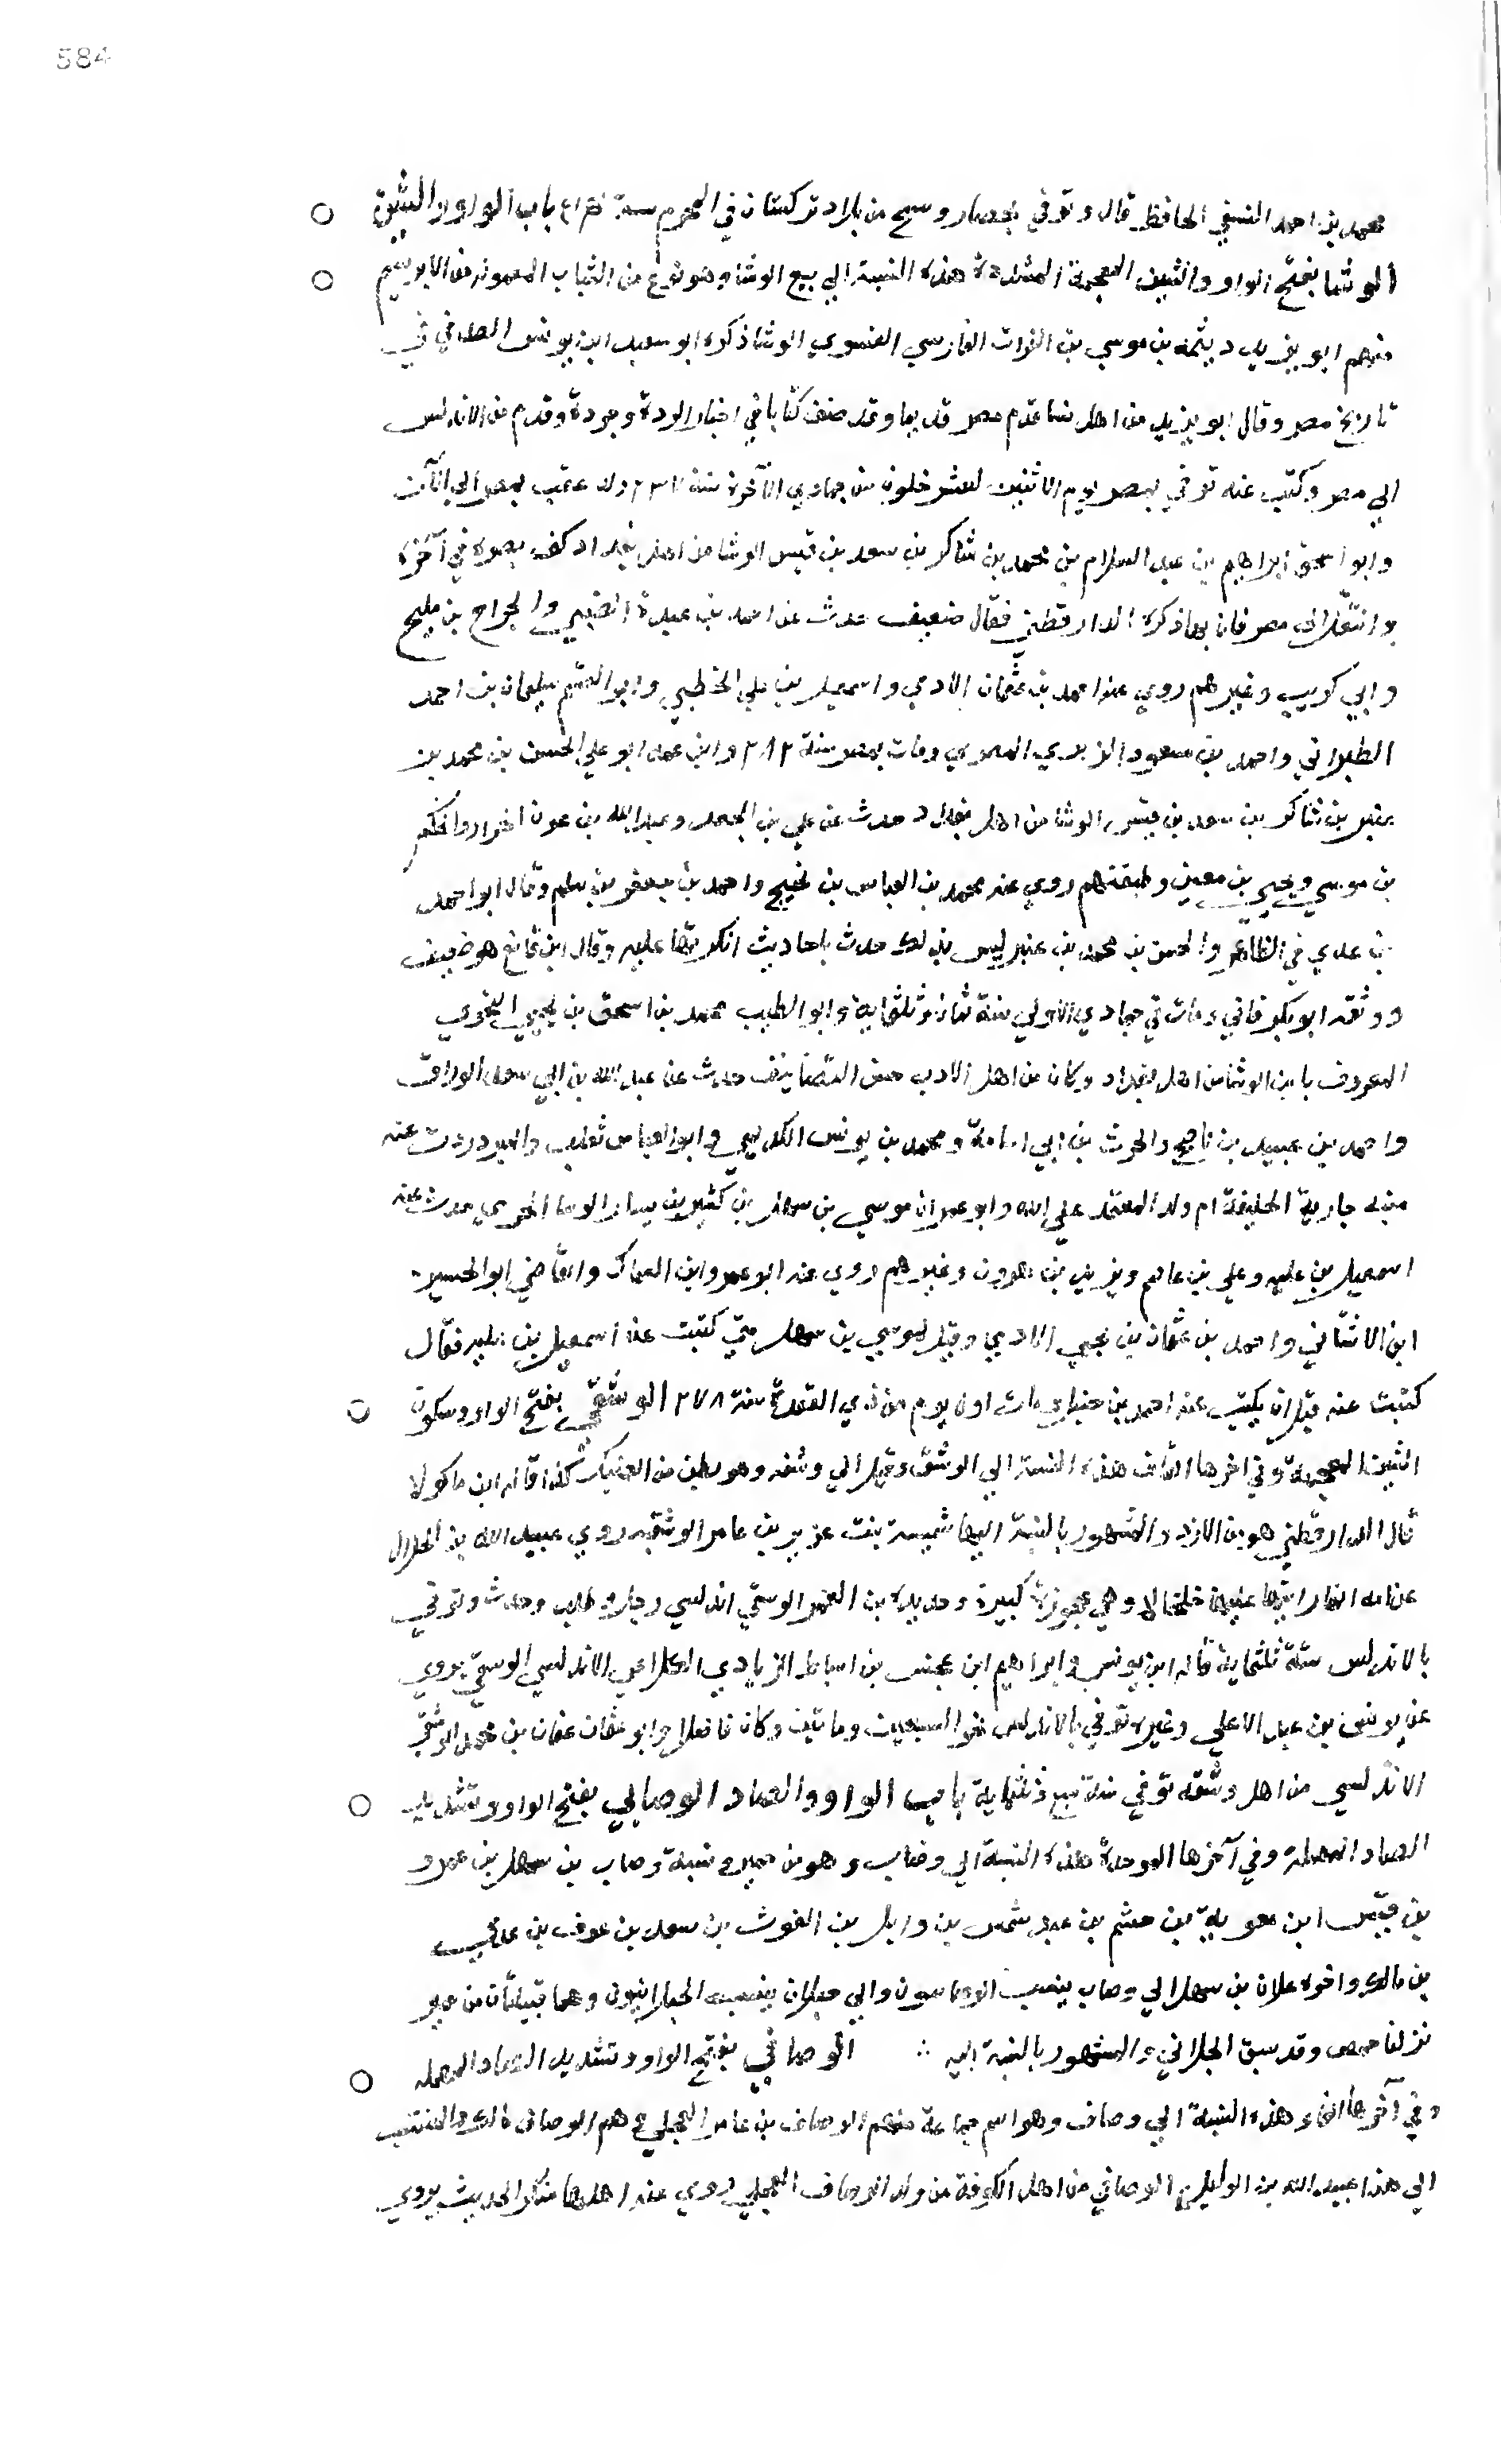 584
محمد بن احمد النسفي الحافظ قال وتوفي بحصار وسيج من بلاد تركستان في المحرم سنة باب الواو والشين
الوشا بفتح الواو والشين المعجمة المشددة هذه النسبة الي بيع الوشا وهو نوع من الثياب المعموله من الابريسم
منهم ابو يزيد وثيمه بن موسي بن الفرات الفارسي الفسوي الوشا ذكره ابو سعيد ابن يونس الصدفي في
تاريخ مصر وقال ابو يزيد من اهل فسا قدم مصر قديما وقد صنف كتابا في اخبار الردة وجودة وقدم من الاندلس
الي مصر وكتب عنه توفي بمصر يوم الاثنين لعشر خلون من جمادي الآخرة سنة ٢٣٧ وله عقب بمصر الي الآن
وابو اسحق ابراهيم بن عبد السلام بن محمد بن شاكر بن سعد بن قيس الوشا من اهل بغداد كف بصره في آخره
وانتقل الي مصر فمات بها ذكره الدارقطني فقال ضعيف حدث عن احمد بن عبدة الضبي والجراح بن مليح
وابي كريب وغيرهم روي عنه احمد بن عثمان الادمي واسمعيل بن علي الخطبي وابو القسم سليمان بن احمد
الطبراني واحمد بن مسعود الزبيري المصري ومات بمصر سنة ٢٨٢ وابن عمه ابو علي الحسن بن محمد بن
عنبر بن شاكر بن سعد بن قيس الوشا من اهل بغداد حدث عن علي بن الجعد وعبد الله بن عون الخراز والحكم
بن موسي ويحيي بن معين وطبقتهم روي عنه محمد بن العباس بن نجيح واحمد بن جعفر بن سلم وقال ابو احمد
بن عدي في الظاهر والحسن بن محمد بن عنبر ليس بذلك حدث باحاديث انكرتها عليه وقال ابن قانع هو ضعيف
ووثقه ابو بكر قاني ومات في جمادي الاولي سنة ثمان وثلثماية وابو الطيب محمد بن اسحق بن يحيي النحوي
المعروف بابن الوشا من اهل بغداد وكان من اهل الادب حسن التصانيف حدث عن عبد الله بن ابي سعد الوراق
واحمد بن عبيد بن ناصح والحرث بن ابي اسامة ومحمد بن يونس الكديمي وابو العباس ثعلب والمبرد روت عنه
منيه جارية الخليفة ام ولد المعتمد علي الله وابو عمران موسي بن سهل بن كثير بن سيار الوشا الحرفي حدث عنه
اسمعيل بن عليه وعلي بن عاصم ويزيد بن هرون وغيرهم روي عنه ابو عمرو ابن السماك والقاضي ابو الحسين
ابن الاشناني واحمد بن عثمان بن يحيي الادمي وقيل لموسي بن سهل متي كتبت عن اسمعيل بن عليه فقال
كتبت عنه قبل ان يكتب عنه احمد بن حنبل مات اول يوم من ذي القعدة سنة ٢٧٨ الوشقي بفتح الواو وسكون
الشين المعجمة وفي اخرها القاف هذه النسبة الي الوشق وقيل الي وشقه وهو بطن من العتيك كذا قاله ابن ماكولا
قال الدارقطني هو من الازد والمشهور بالنسبة اليها شميسة بنت عزيز بن عامر الوشقيه روي عبيد الله بن
عن امه انها رات عليها خلخالا وهي عجوزة كبيرة وحديدة بن الغمر الوشقي اندلسي رحل وطلب وحدث وتوفي
بالاندلس سنة ثلثماية قاله ابن يونس وابراهيم ابن عجنس بن اسباط الزيادي الكلاعي الاندلسي الوشقي يروي
عن يونس بن عبد الاعلي وغيره توفي بالاندلس نحو السبعين وماتين وكان فاضلا وابو عثمان عفان بن محمد الوشقي
الاندلسي من اهل وشقه توفي سنة سبع وثلثماية باب الواو والصاد الوصابي بفتح الواو وتشديد
الصاد المهملة وفي آخرها الموحدة هذه النسبة الي وصاب وهو من حمير ونسبة وصاب بن سهل بن عمرو
بن قيس ابن معوية بن جشم بن عبد شمس بن وايل بن الغوث بن سعد بن عوف بن عدي
بن مالك واخوه جبلان بن سهل الي وصاب ينسب الوصابيون والي جبلان ينسب الجبلانيون وهما قبيلتان من حمير
نزلتا حمص وقد سبق الجبلاني والمشهور بالنسبة اليه ∴ الوصافي بفتح الواو وتشديد الصاد المهملة
وفي آخرها الفاء هذه النسبة الي وصاف وهو اسم جماعة منهم الوصاف بن عامر العجلي وهم الوصاف والمنتسب
الي هذا عبيد الله بن الوليد الوصافي من اهل الكوفة من ولد الوصاف العجلي روي عنه اهلها منكر الحديث يروي